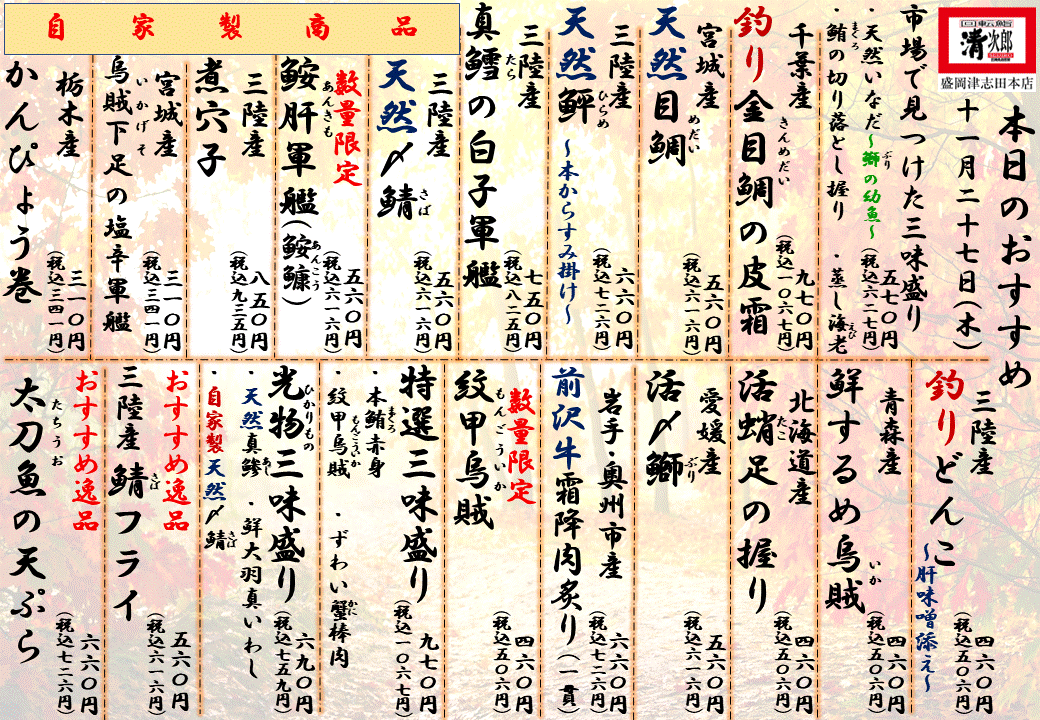 回転鮨
清次郎
盛岡津志田本店
本日のおすすめ
十一月二十七日(木)
市場で見つけた三味盛り
・天然いなだ~鰤の幼魚~
・鮪の切り落とし握り
・蒸し海老
五七〇円
(税込六二七円)
千葉産
釣り金目鯛の皮霜
九七〇円
(税込一〇六七円)
宮城産
天然目鯛
五六〇円
(税込六一六円)
三陸産
天然鮃
~本からすみ掛け~
六六〇円
(税込七二六円)
三陸産
真鱈の白子軍艦
七五〇円
(税込八二五円)
自家製商品
三陸産
天然〆鯖
五六〇円
(税込六一六円)
数量限定
鮟肝軍艦(鮟鱇)
五六〇円
(税込六一六円)
三陸産
煮穴子
八五〇円
(税込九三五円)
宮城産
烏賊下足の塩辛軍艦
三一〇円
(税込三四一円)
栃木産
かんぴょう巻
三一〇円
(税込三四一円)
三陸産
釣りどんこ
~肝味噌添え~
四六〇円
(税込五〇六円)
青森産
鮮するめ烏賊
四六〇円
(税込五〇六円)
北海道産
活蛸足の握り
四六〇円
(税込五〇六円)
愛媛産
活〆鰤
五六〇円
(税込六一六円)
岩手・奥州市産
前沢牛霜降肉炙り(一貫)
六六〇円
(税込七二六円)
数量限定
紋甲烏賊
四六〇円
(税込五〇六円)
特選三味盛り
・本鮪赤身
・紋甲烏賊
・ずわい蟹棒肉
九七〇円
(税込一〇六七円)
光物三味盛り
・天然真鯵
・鮮大羽真いわし
・自家製天然〆鯖
六九〇円
(税込七五九円)
おすすめ逸品
三陸産
鯖フライ
五六〇円
(税込六一六円)
おすすめ逸品
太刀魚の天ぷら
六六〇円
(税込七二六円)